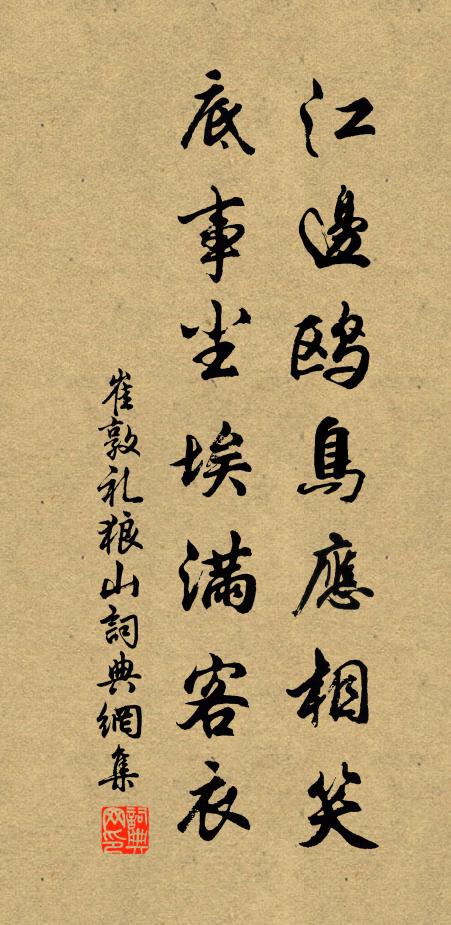 江邊鸥鳥應相笑
底事尘埃满客衣
崔敦礼狼山詞典網集
詞典网印